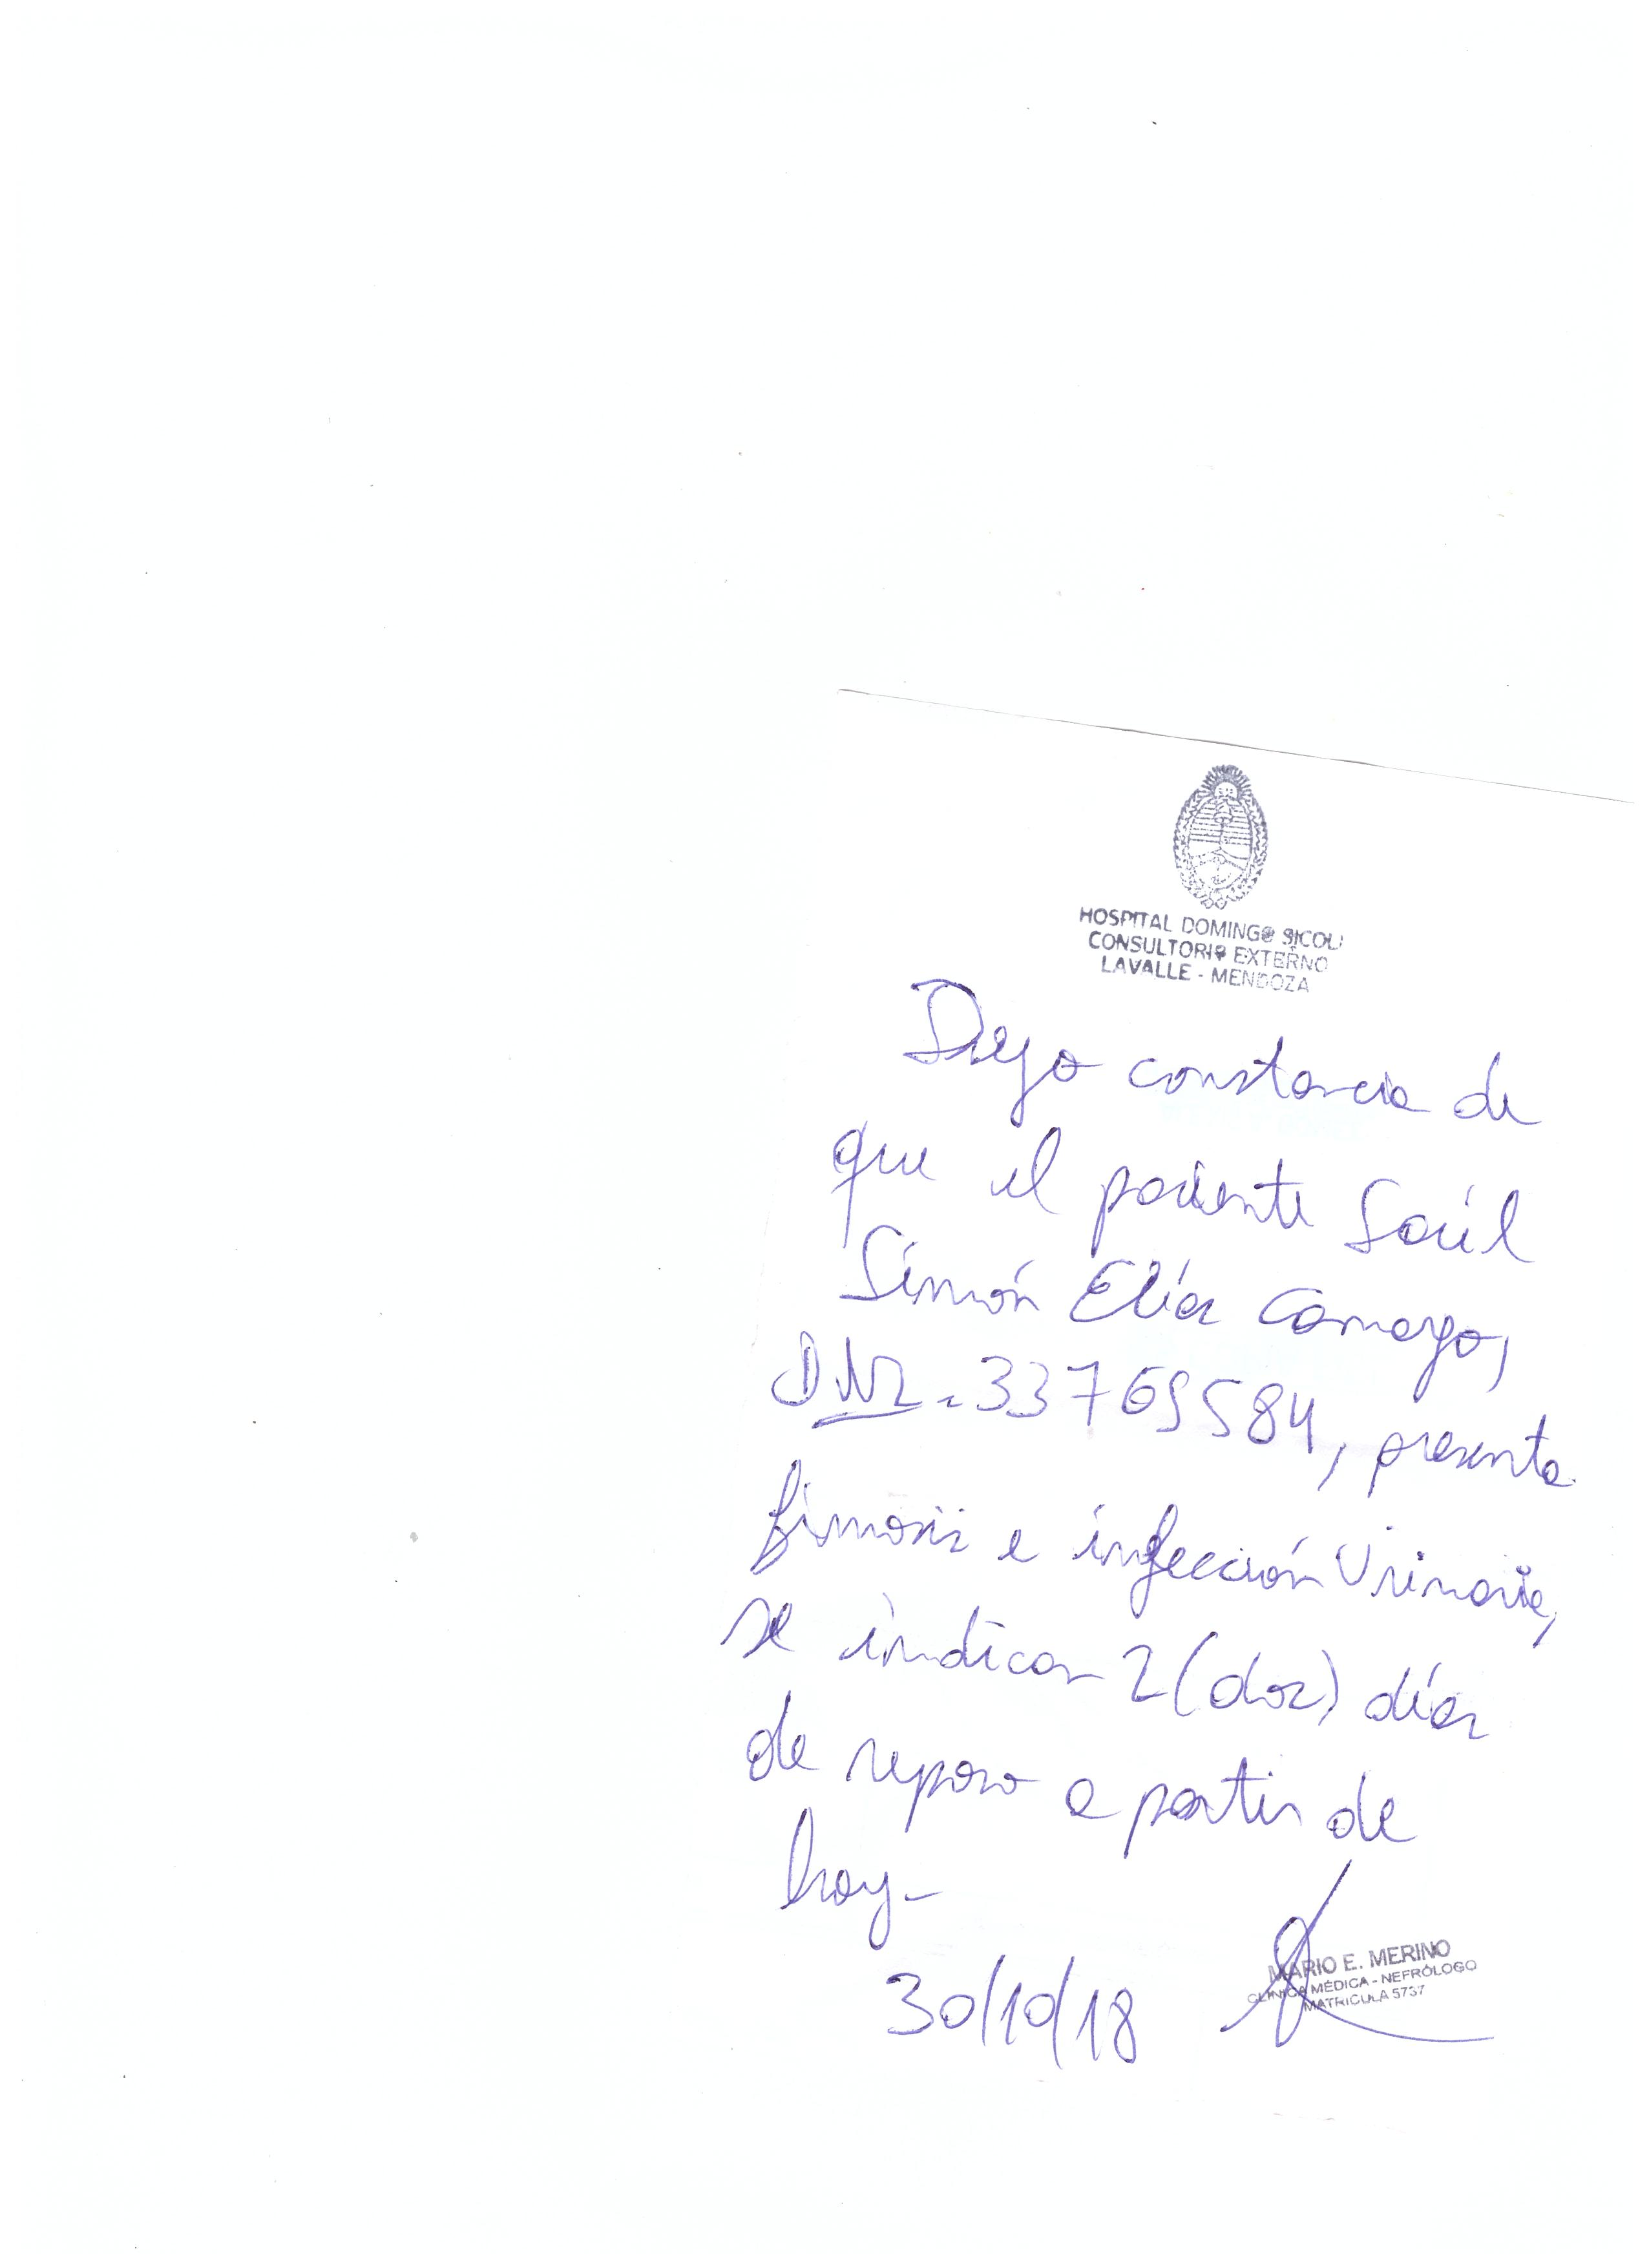 HOSPITAL DOMINGO SICOLI
CONSULTORIO EXTERNO
LAVALLE - MENDOZA
Dejo constancia de
que el paciente Saúl
Simón Elías Camargo,
DNI = 33769584, presenta
fimosis e infección Urinaria,
se indican 2 (dos) días
de reposo a partir de
hoy-
30/10/18
MARIO E. MERINO
CLINICA MÉDICA - NEFRÓLOGO
MATRICULA 5737